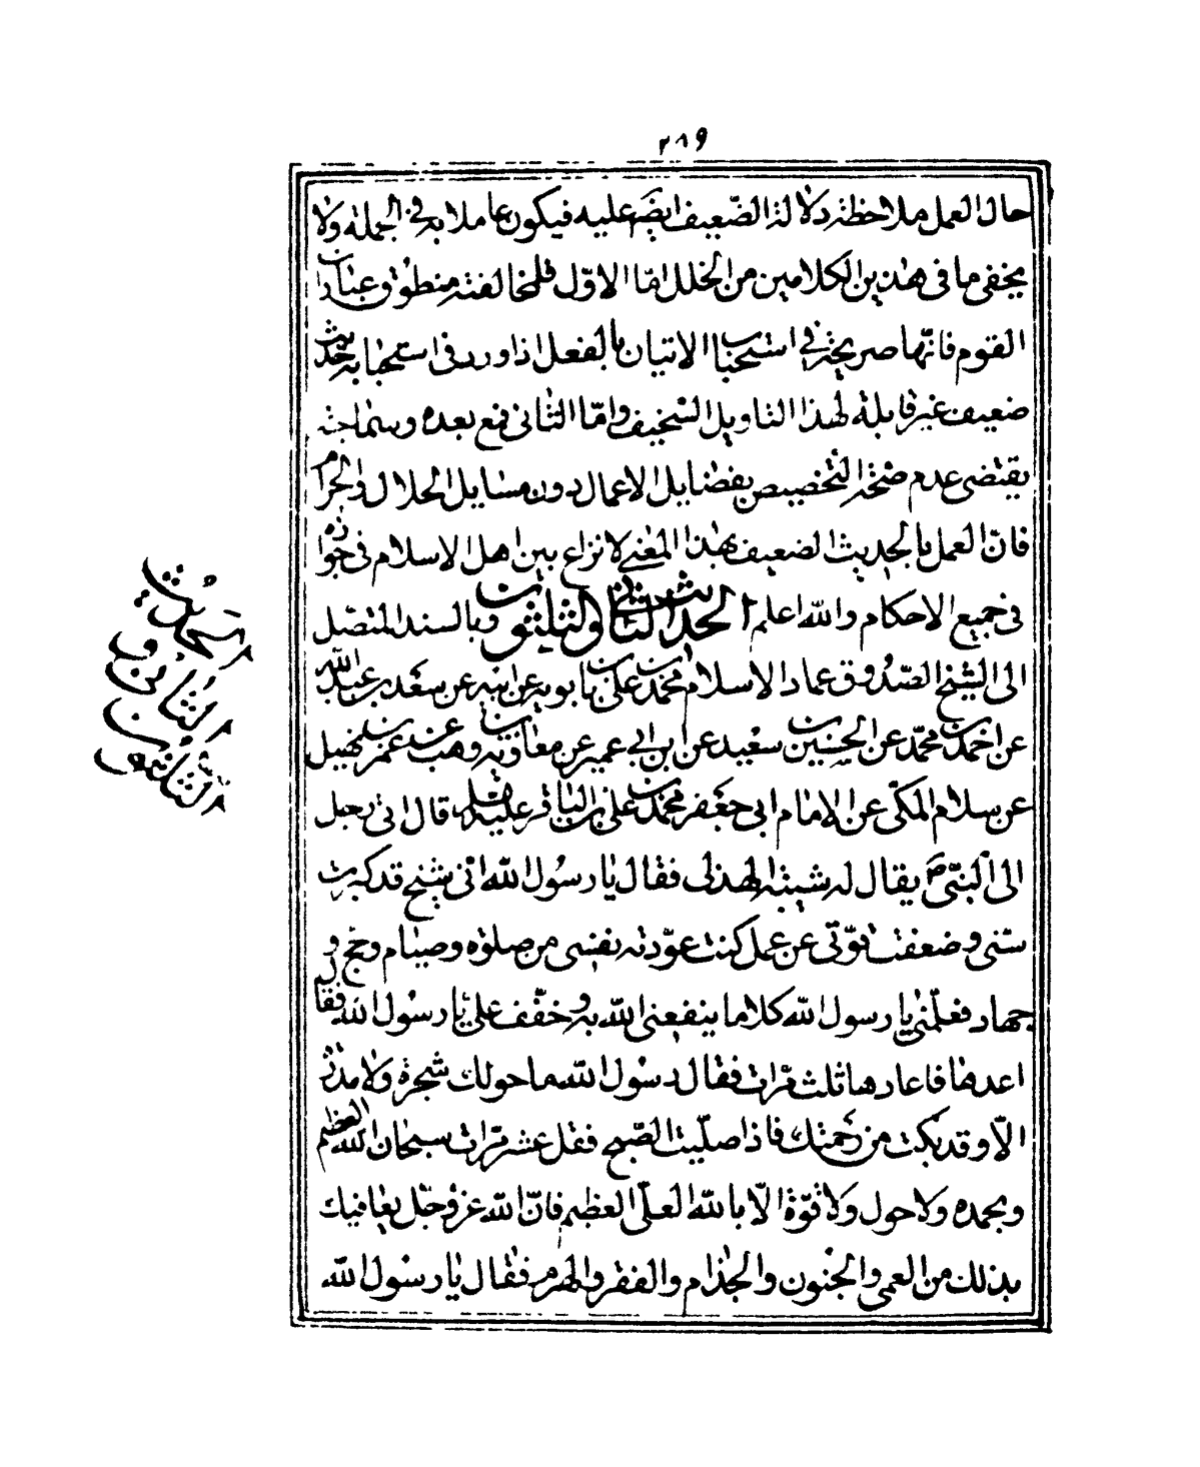 ٢٨٩
حال العمل ملاحظة دلالة الضّعيف ايضًا عليه فيكون عاملا به فى الجملة ولا
يخفى ما فى هذين الكلامين من الخلل امّا الاوّل فلمخالفته منطوق عبارات
القوم فانّها صريحة فى استحباب الاتيان بالفعل اذا ورد فى استحبابه حديث
ضعيف غير قابلة لهذا التاويل السّخيف وامّا الثانى فمع بعده وسماجته
يقتضى عدم صحّة التخصيص بفضايل الاعمال دون مسايل الحلال والحرام
فانّ العمل بالحديث الضعيف بهذا المعنى لا نزاع بين اهل الاسلام فى جوازه
فى جميع الاحكام والله اعلم الحديث الثانى والثلثون وبالسند المتصّل
الى الشيخ الصّدوق عماد الاسلام محمّد بن على بن بابويه عن ابيه عن سعد بن عبد الله
عن احمد بن محمّد عن الحسين بن سعيد عن ابن ابى عمير عن معاوية بن وهب عن عمر بن نهيل
عن سلام المكّى عن الامام ابى جعفر محمّد بن على الباقر عليه السلام قال اتى رجل
الى النبىّ ص يقال له شيبة الهذلى فقال يا رسول الله انى شيخ قد كبرت
سنى وضعفت قوّتى عن عمل كنت عوّدته نفسى من صلوة وصيام وحج و
جهاد فعلّمنى يا رسول الله كلاما ينفعنى الله به وخفّف علىّ يا رسول الله فقال
اعدها فاعادها ثلث مرّات فقال رسول الله ما حولك شجرة ولا مدرة
الّا وقد بكت من رحمتك فاذا صلّيت الصّبح فقل عشر مرّات سبحان الله العظيم
وبحمده ولا حول ولا قوّة الّا بالله العلىّ العظيم فانّ الله عزّ وجلّ يعافيك
بذلك من العمى والجنون والجذام والفقر والهرم فقال يا رسول الله
الحديث
الثانى و
الثلثون